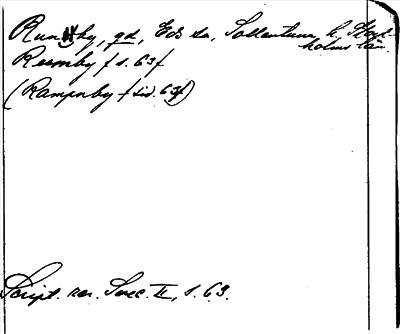 Runsby, gd, Eds sn, Sollentuna h, Stock-
holms län.
Romby f s. 63 f
(Rampnby f sid. 63f)
Script. rer. Svec. II, s. 63.